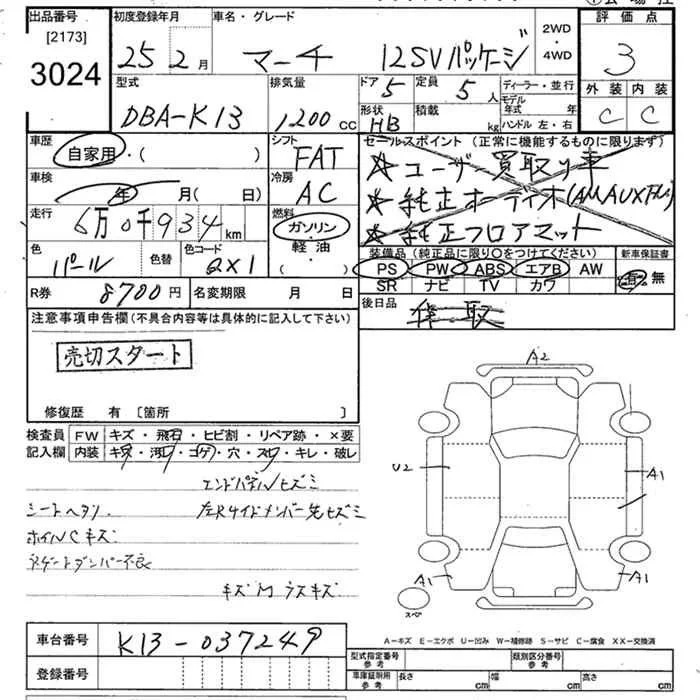 出品番号
[2173]
3024
初度登録年月
25 2月
車名・グレード
マーチ 12SVパッケージ
2WD
・
4WD
評価点
3
外装 内装
C C
型式
DBA-K13
排気量
1200 CC
ドア
5
定員
5人
形状
HB
積載
kg
ディーラー・並行
モデル
年式 年
ハンドル 左・右
車歴
自家用・( )
シフト
FAT
車検
年 月( 日)
冷房
AC
走行
6万0千934km
燃料
ガソリン・
軽油・
色
パール
色替
色コード
QX1
セールスポイント(正常に機能するものに限ります)
☆ユーザー買取り車
☆純正オーディオ
☆純正フロアマット
装備品(純正品に限り○をつけてください)
PS PW ABS エアB AW
SR ナビ TV カワ
新車保証書
有・無
R券 8700円
名変期限 月 日
後日品
注意事項申告欄(不具合内容等は具体的に記入して下さい)
売切スタート
修復歴 有 [箇所 ]
検査員
記入欄
FW キズ・飛石・ヒビ割・リペア跡・×要
内装 キズ・汚れ・コゲ・穴・スレ・キレ・破レ
エンドパネルヒズミ
シートヘタリ
左Rサイドメンバー先ヒズミ
ホイルCキズ
キズM ラスキズ
A2
U2
A1
A1
A1
スペア
A-キズ E-エクボ U-凹み W-補修跡 S-サビ C-腐食 XX-交換済
車台番号 K13-037249
登録番号
型式指定番号
参考
類別区分番号
参考
車庫証明用
参考
長さ cm
幅 cm
高さ cm